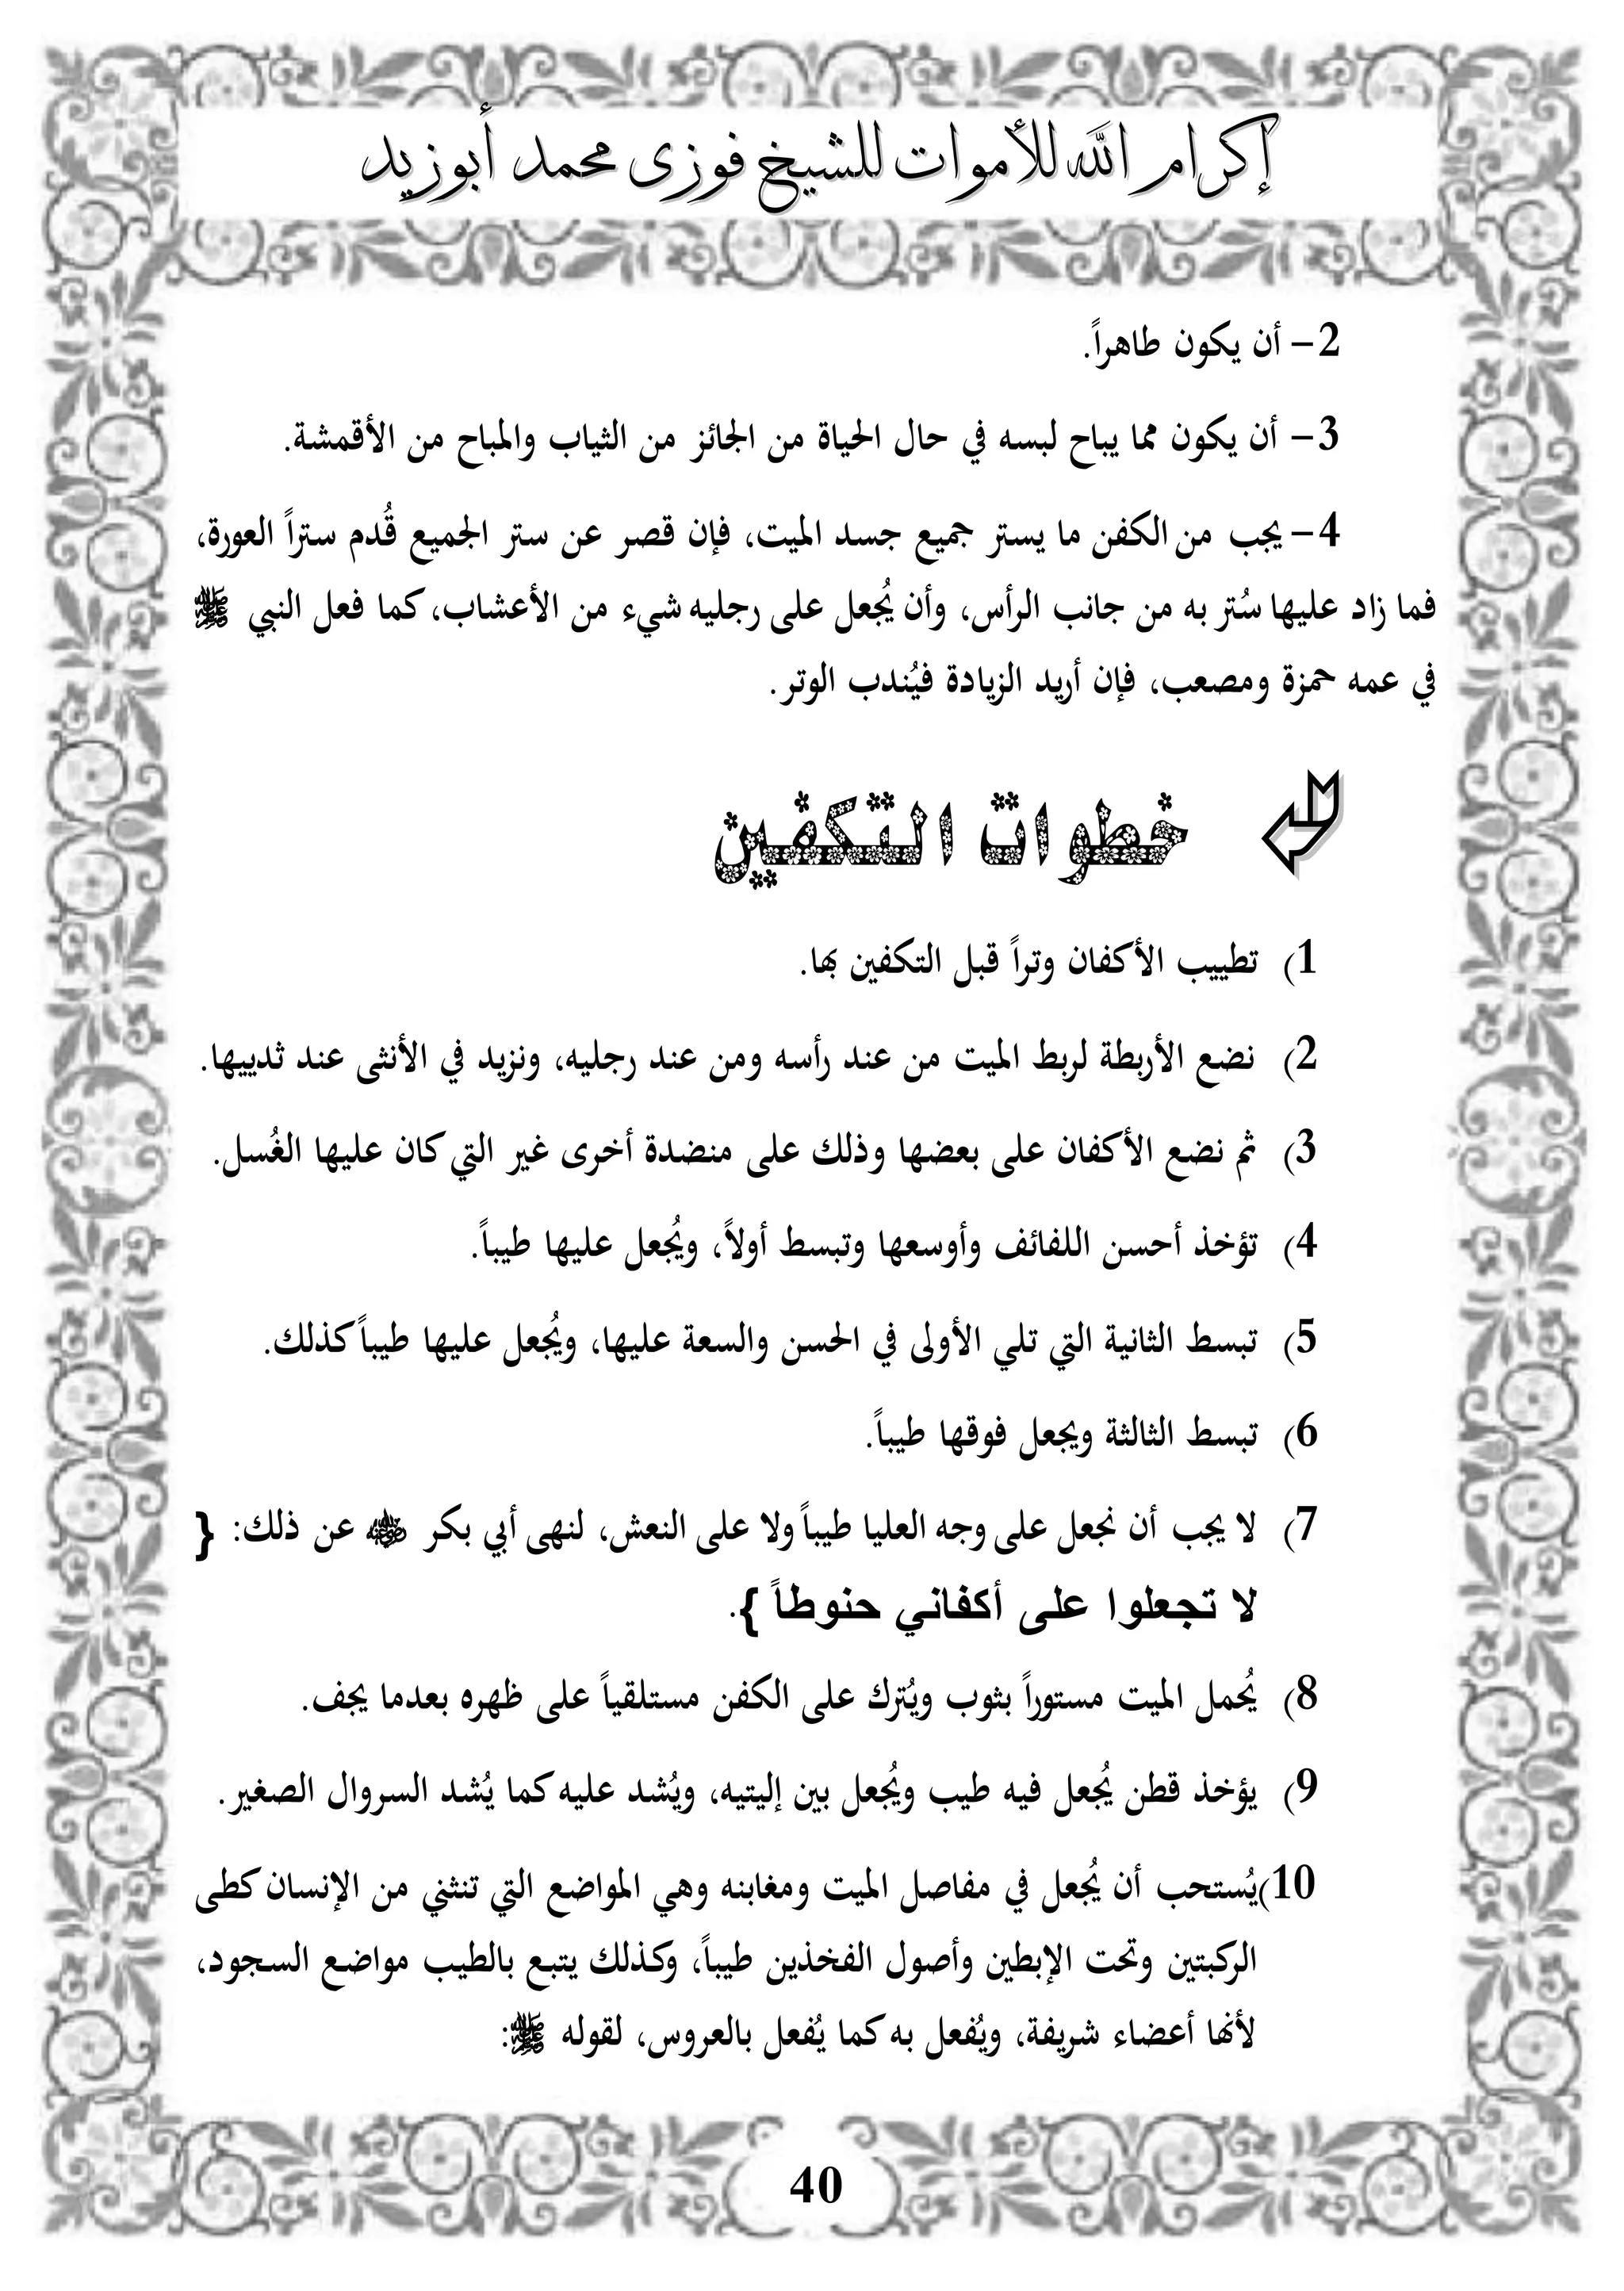 إكرام الله للأموات للشيخ فوزى محمد أبوزيد
2- أن يكون طاهراً.
3- أن يكون مما يباح لبسه في حال الحياة من الجائز من الثياب والمباح من الأقمشة.
4- يجب من الكفن ما يستر جميع جسد الميت، فإن قصر عن ستر الجميع قُدم ستراً العورة،
فما زاد عليها سُتر به من جانب الرأس، وأن يُجعل على رجليه شيء من الأعشاب، كما فعل النبي ﷺ
في عمه حمزة ومصعب، فإن أريد الزيادة فيُندب الوتر.
خطوات التكفين
1) تطييب الأكفان وتراً قبل التكفين بها.
2) نضع الأربطة لربط الميت من عند رأسه ومن عند رجليه، ونزيد في الأنثى عند ثدييها.
3) ثم نضع الأكفان على بعضها وذلك على منضدة أخرى غير التي كان عليها الغُسل.
4) تؤخذ أحسن اللفائف وأوسعها وتبسط أولاً، ويُجعل عليها طيباً.
5) تبسط الثانية التي تلي الأولى في الحسن والسعة عليها، ويُجعل عليها طيباً كذلك.
6) تبسط الثالثة ويجعل فوقها طيباً.
7) لا يجب أن نجعل على وجه العليا طيباً ولا على النعش، لنهى أبي بكر عن ذلك: {
لا تجعلوا على أكفاني حنوطاً }.
8) يُحمل الميت مستوراً بثوب ويُترك على الكفن مستلقياً على ظهره بعدما يجف.
9) يؤخذ قطن يُجعل فيه طيب ويُجعل بين إليتيه، ويُشد عليه كما يُشد السروال الصغير.
10) يُستحب أن يُجعل في مفاصل الميت ومغابنه وهي المواضع التي تنثني من الإنسان كطى
الركبتين وتحت الإبطين وأصول الفخذين طيباً، وكذلك يتبع بالطيب مواضع السجود،
لأنها أعضاء شريفة، ويُفعل به كما يُفعل بالعروس، لقوله ﷺ:
40